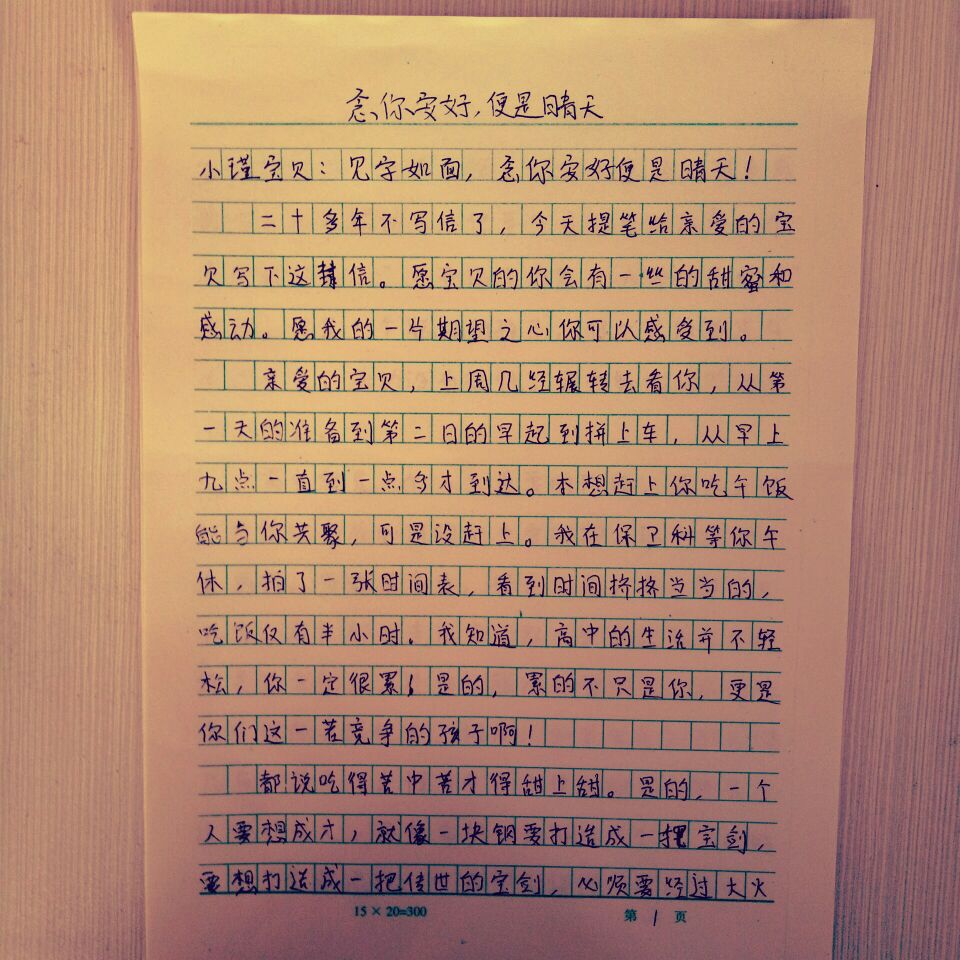 念你安好，便是晴天
小瑾宝贝：见字如面，念你安好便是晴天！
二十多年不写信了，今天提笔给亲爱的宝
贝写下这封信。愿宝贝的你会有一丝的甜蜜和
感动。愿我的一片期望之心你可以感受到。
亲爱的宝贝，上周几经辗转去看你，从第
一天的准备到第二日的早起到拼上车，从早上
九点一直到一点多才到达。本想赶上你吃午饭
能与你共聚，可是没赶上。我在保卫科等你午
休，拍了一张时间表，看到时间挤挤当当的，
吃饭仅有半小时。我知道，高中的生活并不轻
松，你一定很累！是的，累的不只是你，更是
你们这一茬竞争的孩子啊！
都说吃得苦中苦才得甜上甜。是的，一个
人要想成才，就像一块钢要打造成一把宝剑，
要想打造成一把传世的宝剑，必须要经过大火
15×20=300
第 1 页